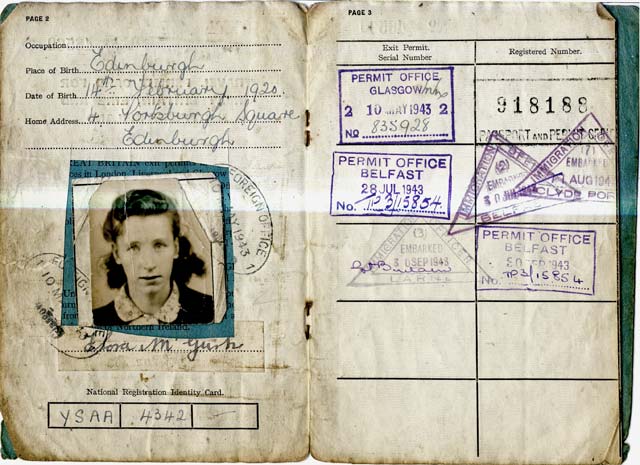 PAGE 2
Occupation
Place of Birth Edinburgh
Date of Birth 14th February 1920.
Home Address 4 Portsburgh Square
Edinburgh
FOREIGN OFFICE
MAY 1943
1
Northern Ireland.
Flora M
National Registration Identity Card.
YSAA 4342 —
PAGE 3
Exit Permit.
Serial Number
Registered Number.
PERMIT OFFICE
GLASGOW
2 10 MAY 1943 2
No 833928
918188
PASSPORT AND PERMIT OFFICE
PERMIT OFFICE
BELFAST
28 JUL 1943
No. TP3/15854
IMMIGRATION OFFICER
(2)
EMBARKED
BELFAST
IMMIGRATION
EMBARKED
AUG 194
CLYDE POR
IMMIGRATION OFFICER
(3)
EMBARKED
30 SEP 1943
LARNE
PERMIT OFFICE
BELFAST
SEP 1943
No. TP3/15854